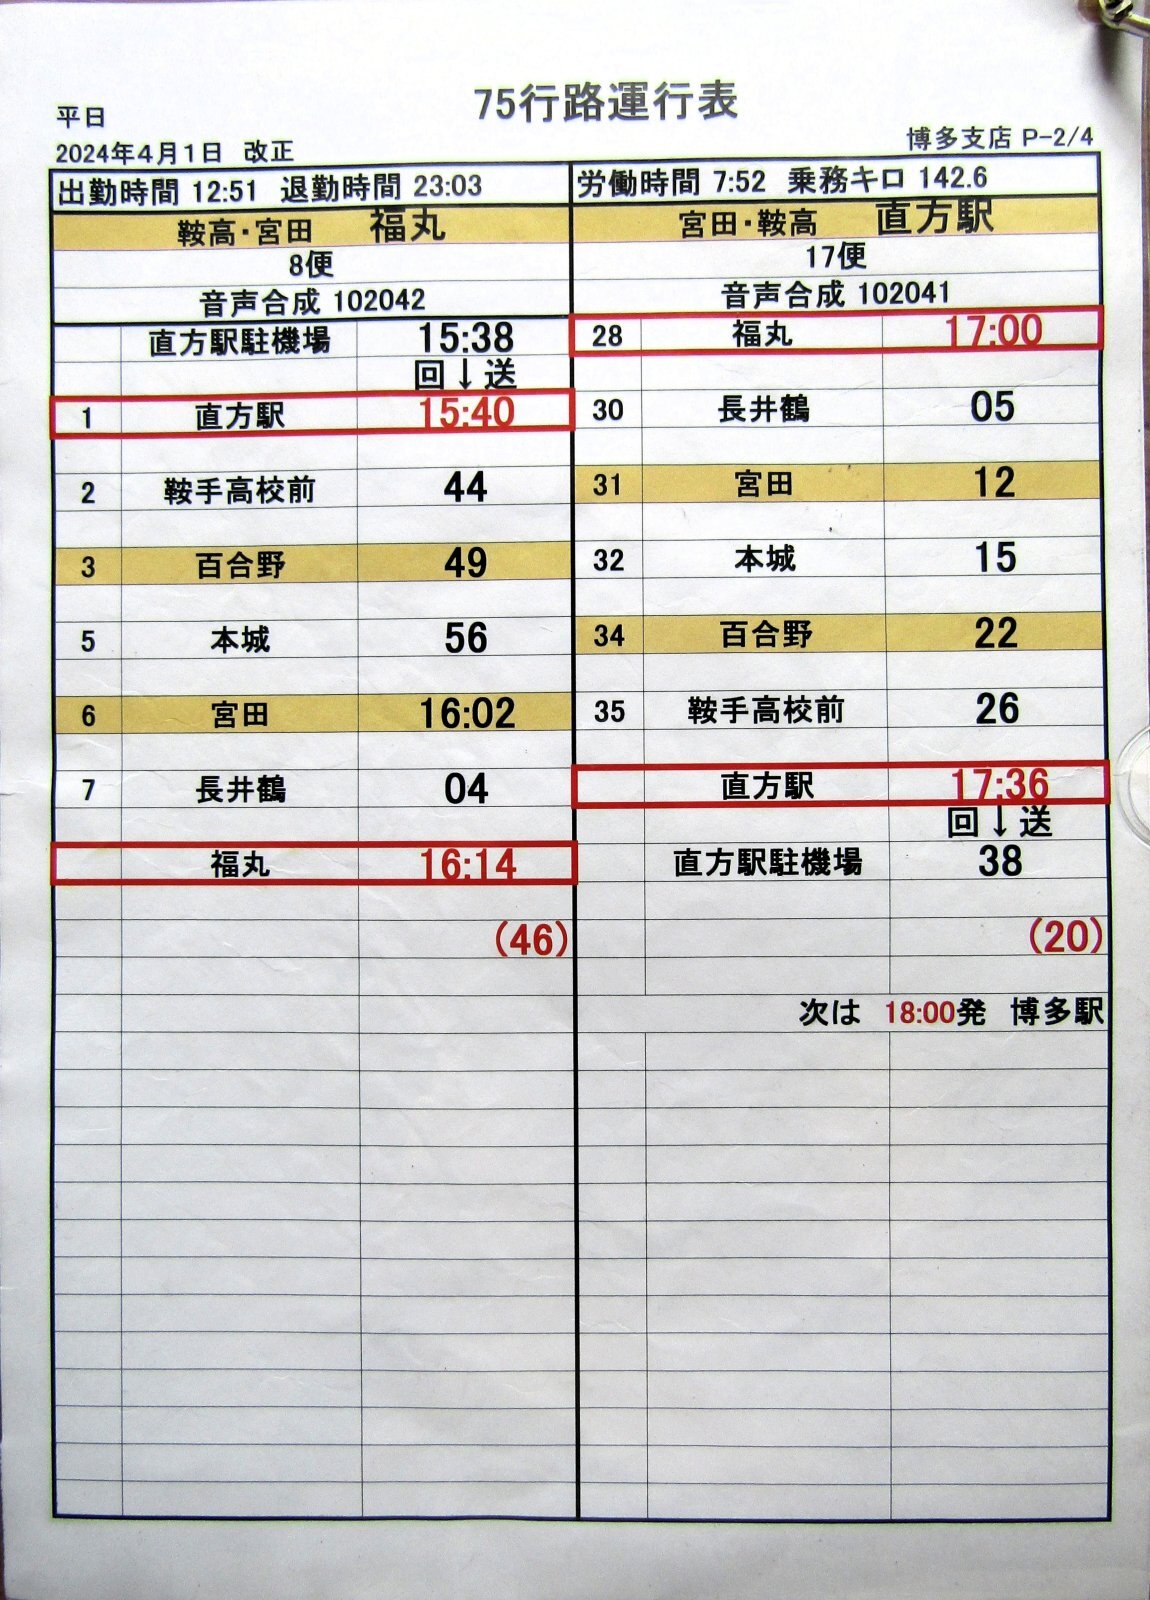 75行路運行表
平日
2024年4月1日 改正
博多支店 P-2/4
出勤時間 12:51 退勤時間 23:03
労働時間 7:52 乗務キロ 142.6
鞍高・宮田 福丸
8便
音声合成 102042
直方駅駐機場 15:38
回↓送
1 直方駅 15:40
2 鞍手高校前 44
3 百合野 49
5 本城 56
6 宮田 16:02
7 長井鶴 04
福丸 16:14
(46)
宮田・鞍高 直方駅
17便
音声合成 102041
28 福丸 17:00
30 長井鶴 05
31 宮田 12
32 本城 15
34 百合野 22
35 鞍手高校前 26
直方駅 17:36
回↓送
直方駅駐機場 38
(20)
次は 18:00発 博多駅